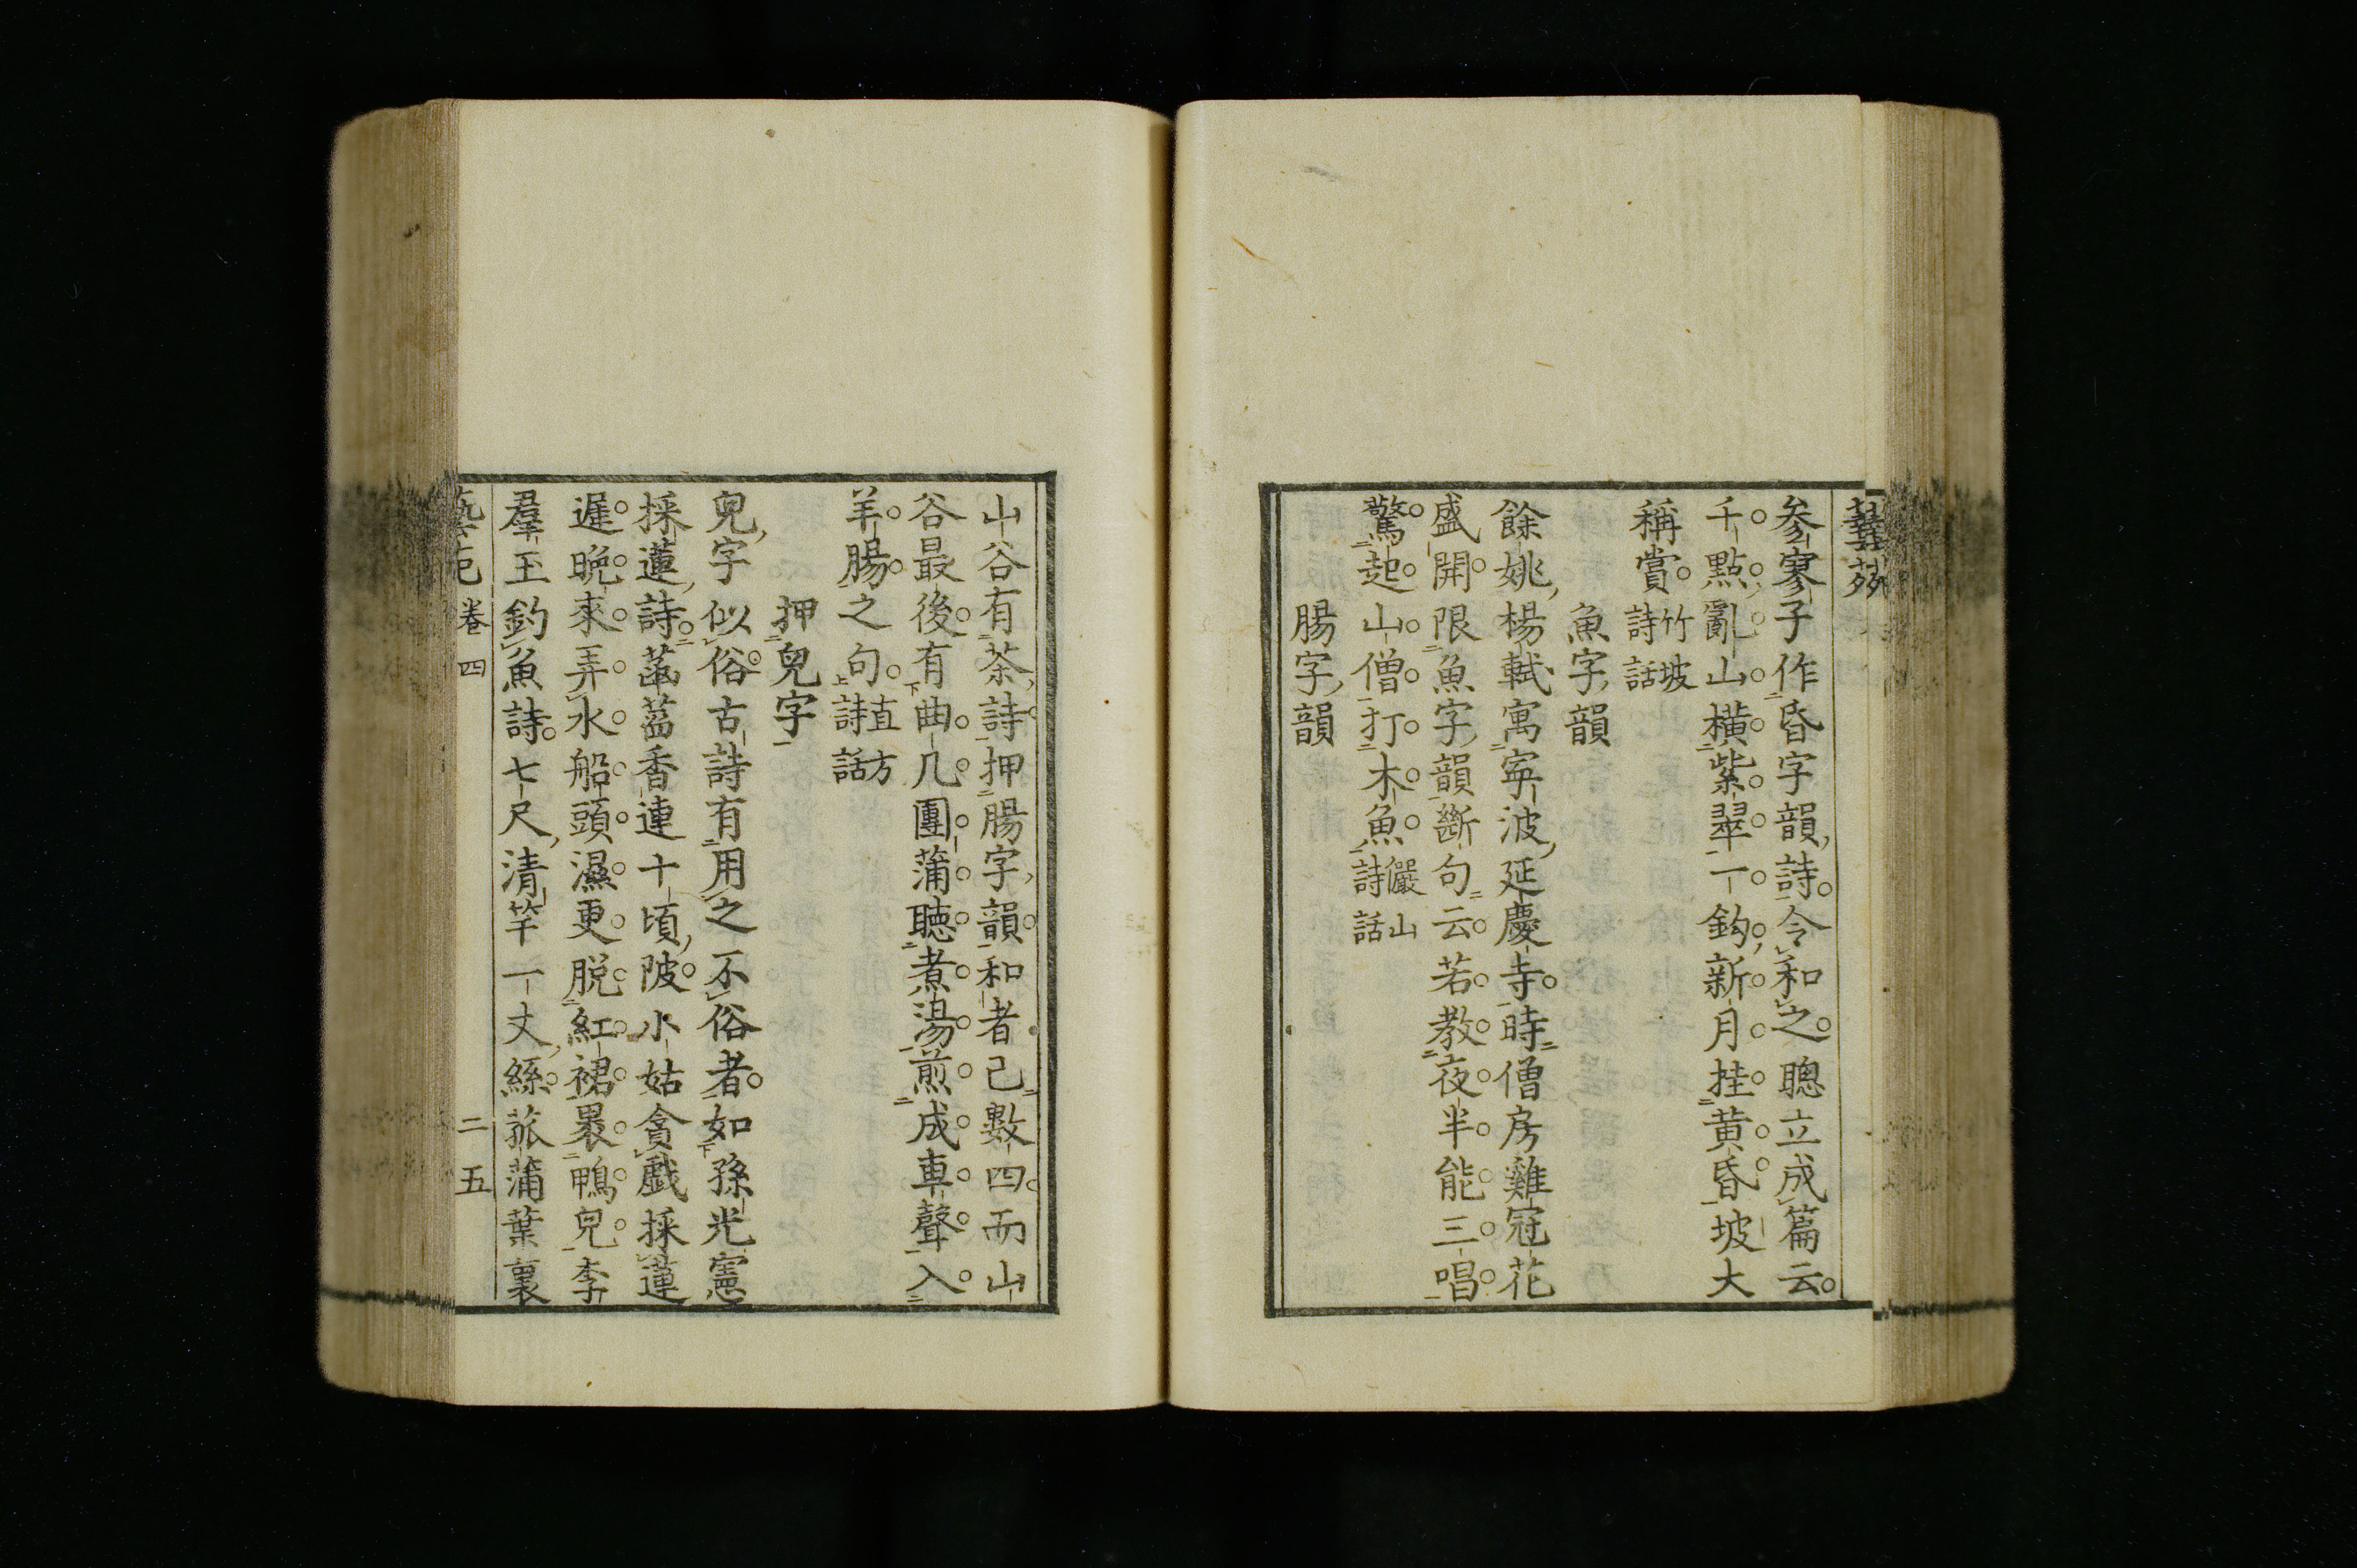 参寥子作昏字韻詩令和之聰立成篇云
千點亂山橫紫翠一鈎新月挂黄昏坡大
稱賞竹坡詩話
魚字韻
餘姚楊軾寓寧波延慶寺時僧房雞冠花
盛開限魚字韻斷句云若教夜半能三唱
驚起山僧打木魚儼山詩話
腸字韻
山谷有茶詩押腸字韻和者已數四而山
谷最後有曲几團蒲聽煮湯煎成車聲入
羊腸之句直方詩話
押兒字
兒字似俗古詩有用之不俗者如孫光憲
採蓮詩菡萏香連十頃陂小姑貪戲採蓮
遲晚來弄水船頭濕更脱紅裙裹鴨兒李
羣玉釣魚詩七尺清竿一丈絲菰蒲葉裏
卷四
二五